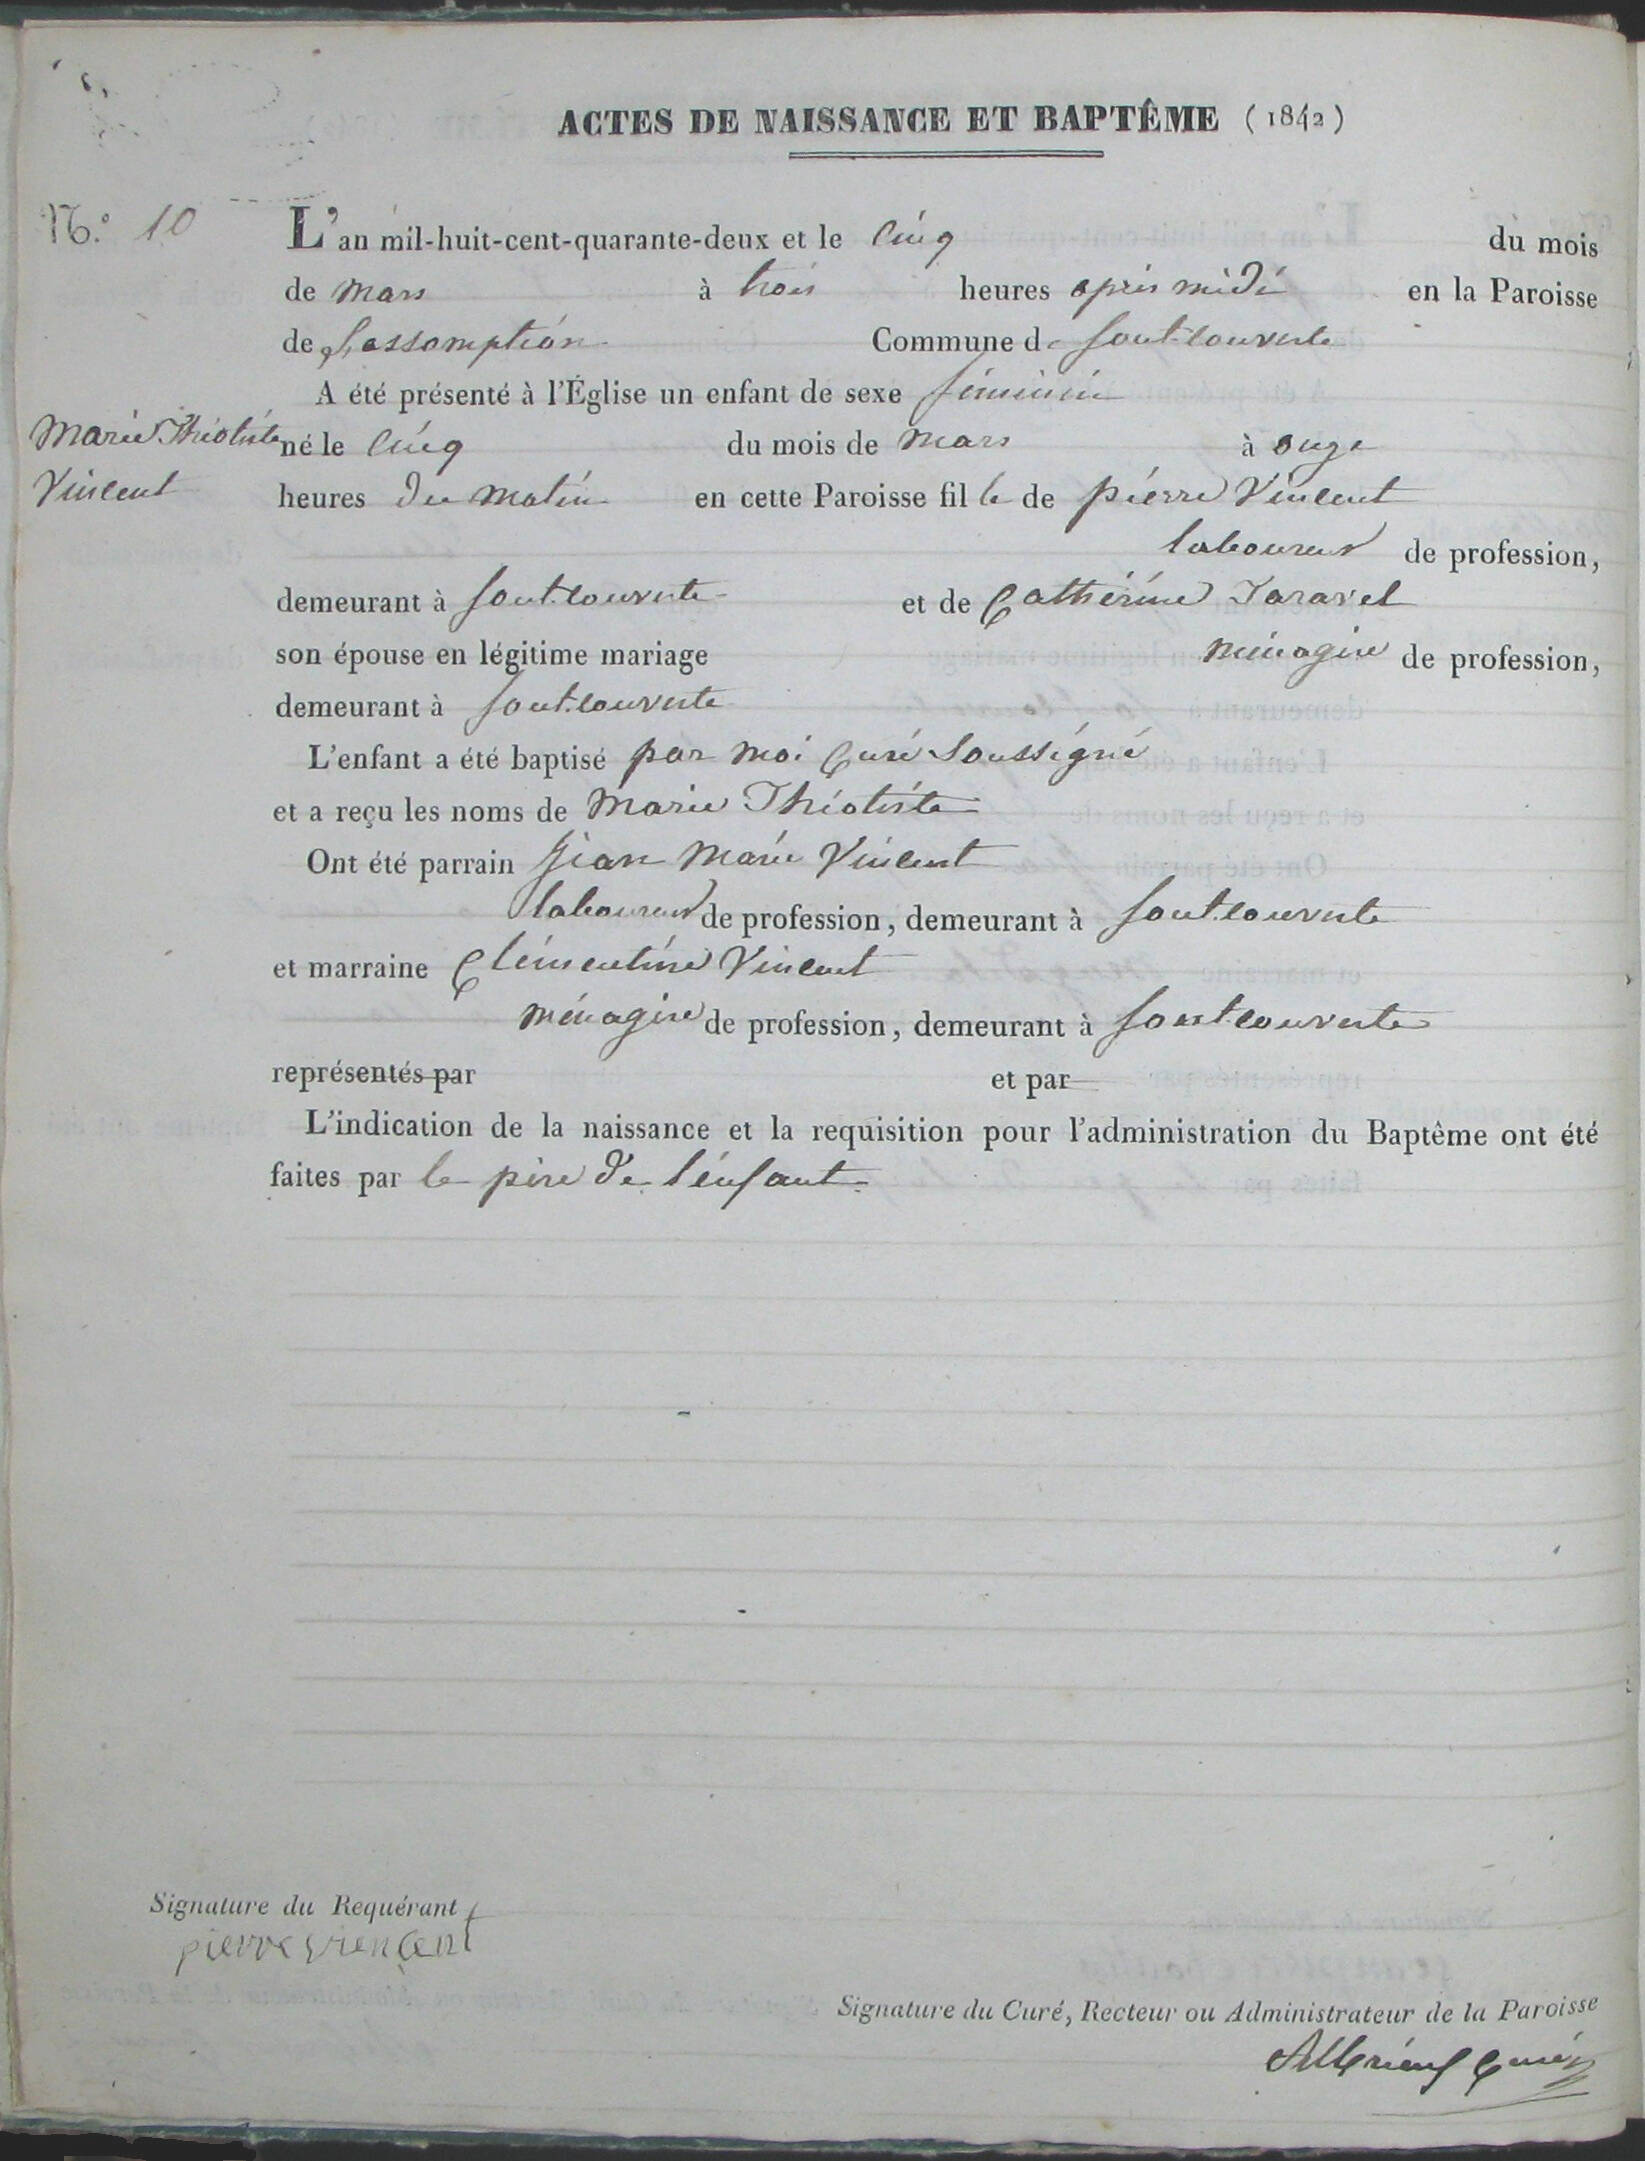 ACTES DE NAISSANCE ET BAPTÊME (1842)
N.° 10
L'an mil-huit-cent-quarante-deux et le cinq du mois
de mars à trois heures après midi en la Paroisse
de L'assomption Commune de fontcouverte
A été présenté à l'Église un enfant de sexe féminin
Marie Théotiste né le cinq du mois de mars à onze
Vincent heures du matin en cette Paroisse fille de pierre Vincent
laboureur de profession,
demeurant à fontcouverte et de Catherine Taravel
son épouse en légitime mariage ménagère de profession,
demeurant à fontcouverte
L'enfant a été baptisé par moi Curé Soussigné
et a reçu les noms de Marie Théotiste
Ont été parrain Jean Marie Vincent
laboureur de profession, demeurant à fontcouverte
et marraine Clémentine Vincent
ménagère de profession, demeurant à fontcouverte
représentés par et par
L'indication de la naissance et la requisition pour l'administration du Baptême ont été
faites par le père de l'enfant
Signature du Requérant
pierre vrencent
Signature du Curé, Recteur ou Administrateur de la Paroisse
Curé